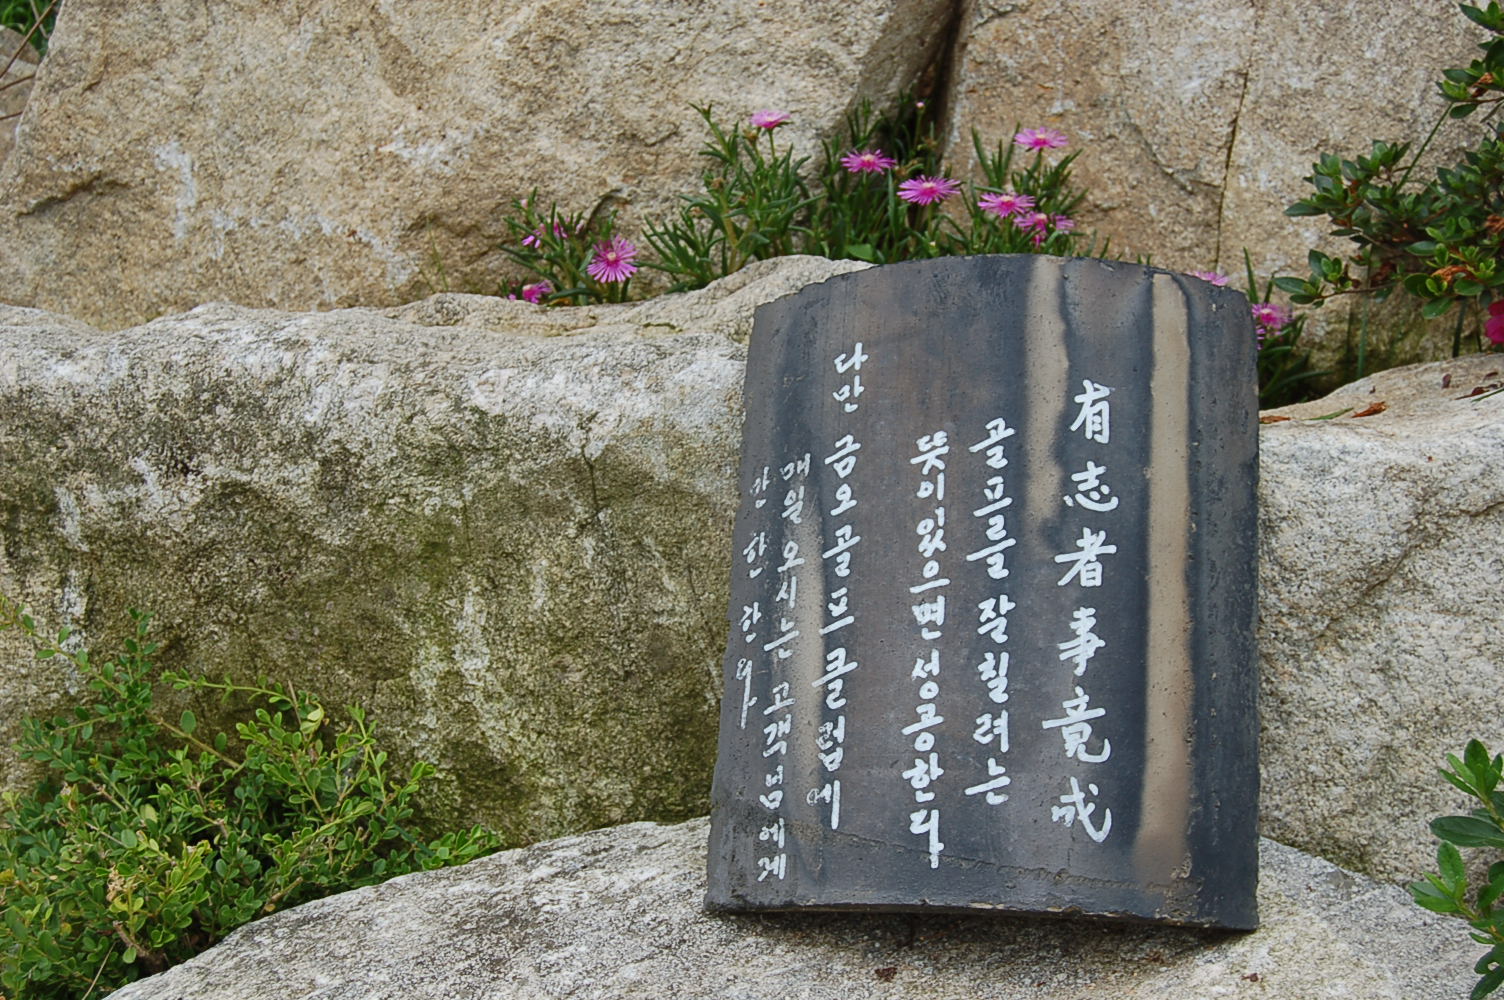 有志者事竟成
골프를 잘 칠려는
뜻이 있으면 성공한다
다만 금오골프클럽에
매일 오시는 고객님에게
만 한한다